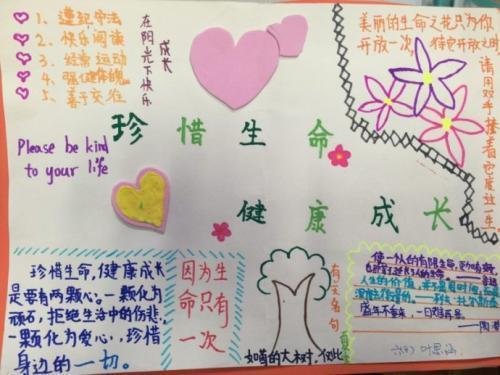 1、遵纪守法
2、快乐阅读
3、经常运动
4、强健体魄
5、善于交往
在阳光下快乐
成长
美丽的生命之花只为你
开放一次
请用双手接着它度过一生
珍惜生命
Please be kind
to your life
健康成长
珍惜生命,健康成长
是要有两颗心:一颗化为
顽石,拒绝生活中的伤悲,
一颗化为爱心,珍惜
身边的一切。
因为生
命只有
一次
有关名句
使一个人的有限生命,更加有效,
也即等于延长了人的生命
人生的价值,并不是用时间,而是用
深度去衡量的。——列夫·托尔斯泰
盛年不重来,一日难再晨。